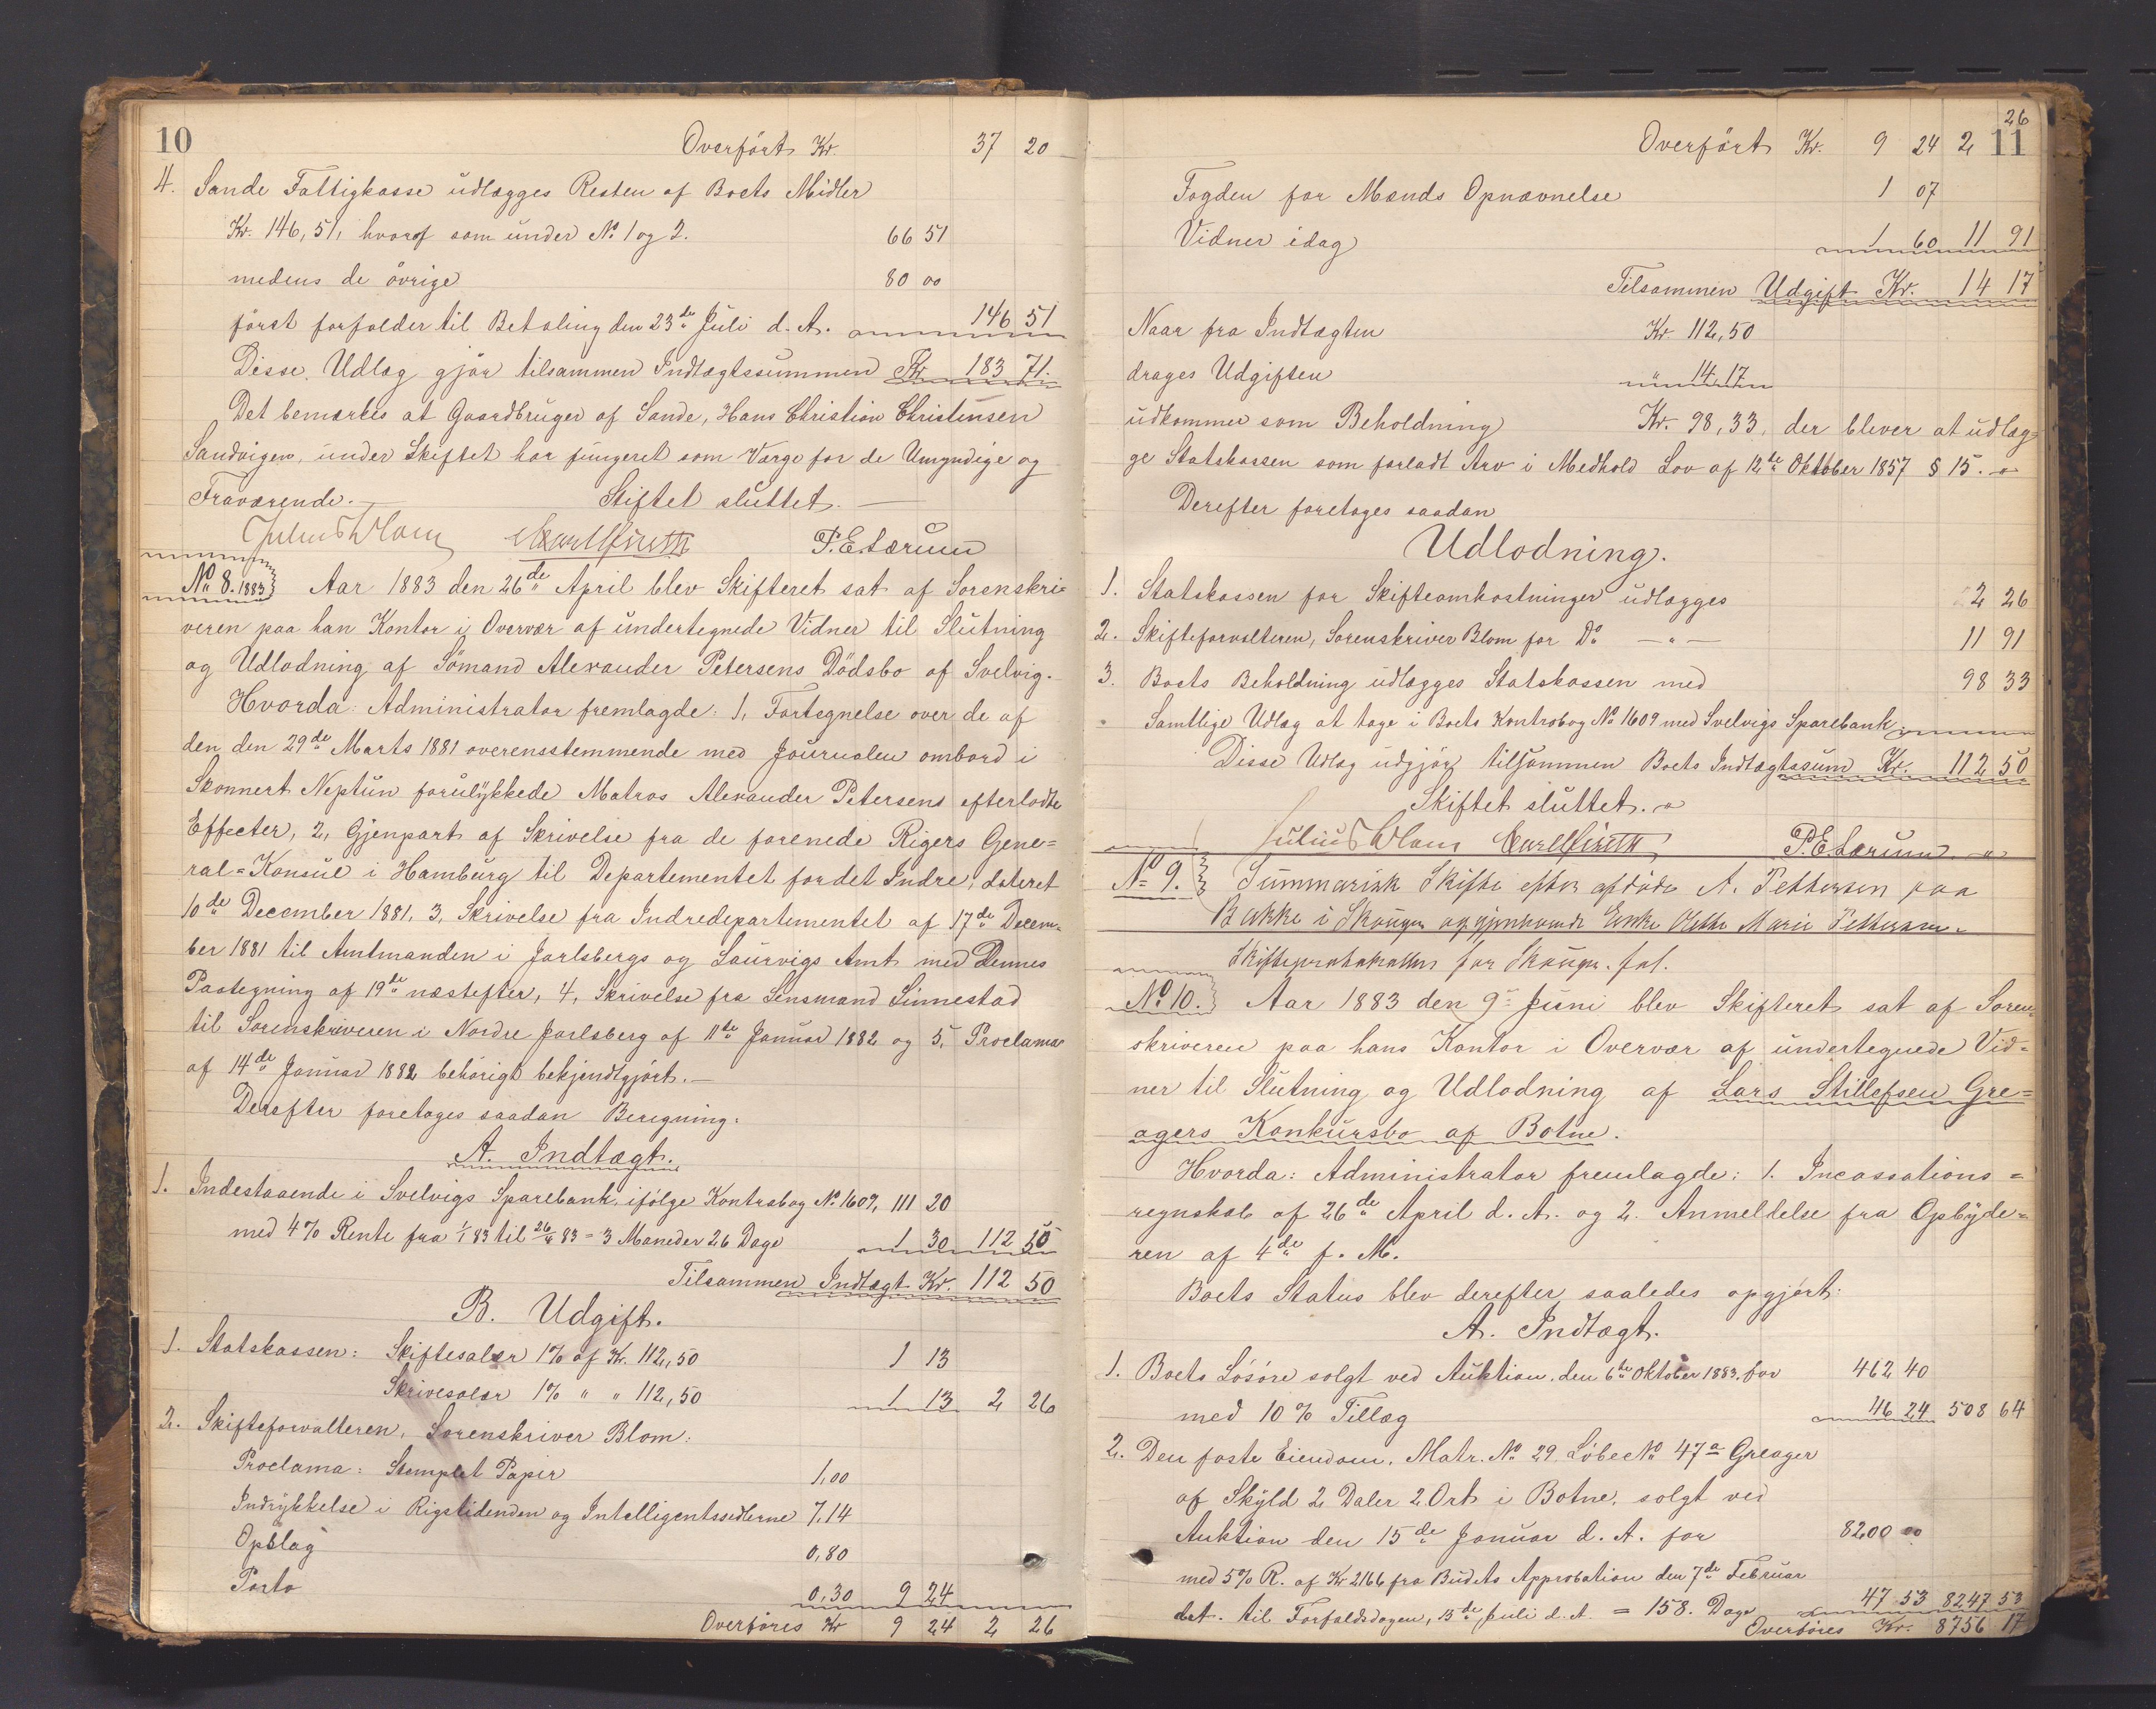 10
Overført Kr. 37 20
4. Sande Fattigkasse udlægges Resten af Boets Midler
Kr. 146,51, hvoraf som under No 1 og 2. 66 51
medens de övrige 80 00
först forfalder til Betaling den 23de Juli d. A. 146 51
Disse Udlæg gjör tilsammen Indtægtssummen Kr 183 71.
Det bemærkes at Gaardbruger af Sande, Hans Christian Christensen
Sandvigen, under Skiftet har fungeret som Værge for de Umyndige og
Fraværende. Skiftet sluttet.
Julius Blom P. E. Lærum
No 8. 1883 Aar 1883 den 26de April blev Skifteret sat af Sorenskri=
veren paa han Kontor i Overvær af undertegnede Vidner til Slutning
og Udlodning af Sömand Alexander Petersens Dödsbo af Svelvig.
Hvorda: Administrator fremlagde: 1, Fortegnelse over de af
den den 29de Marts 1881 overensstemmende med Journalen ombord i
Skonnert Neptun forulykkede Matros Alexander Petersens efterladte
Effecter, 2, Gjenpart af Skrivelse fra de forenede Rigers Gene=
ral=Konsul i Hamburg til Departementet for det Indre, dateret
10de December 1881, 3, Skrivelse fra Indredepartementet af 17de Decem=
ber 1881 til Amtmanden i Jarlsbergs og Laurvigs Amt med Dennes
Paategning af 19de næstefter, 4, Skrivelse fra Lensmand Linnestad
til Sorenskriveren i Nordre Jarlsberg af 11te Januar 1882 og 5, Proclama
af 14de Januar 1882 behörigt bekjendtgjört.
Derefter foretoges saadan Beregning:
A. Indtægt.
1. Indestaaende i Svelvigs Sparebank, ifölge Kontrabog No 1609, 111 20
med 4% Rente fra 1/1 83 til 26/4 83 = 3 Maneder 26 Dage 1 30 112 50
Tilsammen Indtægt Kr. 112 50
B. Udgift.
1. Statskassen: Skiftesalær 1% af Kr. 112,50 1 13
Skrivesalær 1% " " 112,50 1 13 2 26
2. Skifteforvalteren, Sorenskriver Blom:
Proclama: Stemplet Papir 1,00
Indrykkelse i Rigstidenden og Intelligentssedlerne 7,14
Opslag 0,80
Porto 0,30 9 24
Overföres Kr 9 24 2 26
11
Overført Kr. 9 24 2 26
Fogden for Mænds Opnævnelse 1 07
Vidner idag 1 60 11 91
Tilsammen Udgift Kr. 14 17
Naar fra Indtægten Kr. 112,50
drages Udgiften " 14,17
udkommer som Beholdning Kr. 98,33, der blever at udlæg=
ge Statskassen som forladt Arv i Medhold Lov af 12te Oktober 1857 § 15.
Derefter foretoges saadan
Udlodning.
1. Statskassen for Skifteomkostninger udlægges 2 26
2. Skifteforvalteren, Sorenskriver Blom for Do - " - 11 91
3. Boets Beholdning udlægges Statskassen med 98 33
Samtlige Udlæg at tage i Boets Kontrabog No 1609 med Svelvigs Sparebank
Disse Udlæg udgjör tilsammen Boets Indtægtssum Kr. 112 50
Skiftet sluttet.
Julius Blom P. E. Lærum
No 9. Summarisk Skifte efter afdöde A. Pettersen paa
Bakke i Skouger og gjenlevende Enke Marie Pettersen.
Skifteprotokollen for Skouger. fol.
No 10. Aar 1883 den 9de Juni blev Skifteret sat af Soren=
skriveren paa hans Kontor i Overvær af undertegnede Vid=
ner til Slutning og Udlodning af Lars Stillefsen Gre=
agers Konkursbo af Botne.
Hvorda: Administrator fremlagde: 1. Incassations=
regnskab af 26de April d. A. og 2. Anmeldelse fra Opbyde=
ren af 4de f. M.
Boets Status blev derefter saaledes opgjört:
A. Indtægt.
1. Boets Lösöre solgt ved Auktion den 6te Oktober 1883, for 462 40
med 10% Tillæg 46 24 508 64
2. Den faste Eiendom, Matr. No 29, Löbe No 47a Greager
af Skyld 2 Daler 2 Ort i Botne, solgt ved
Auktion den 15de Januar d. A. for 8200 00
med 5% R. af Kr 2166 fra Budets Approbation den 7de Februar
dat. til Forfaldsdagen, 15de Juli d. A. = 158. Dage 47 53 8247 53
Overföres Kr. 8756 17